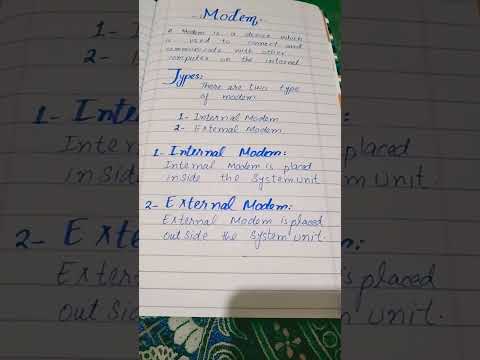 Modem.
A Modem is a device which
is used to connect and
communicate with other
computer on the internet
Types:
There are two type
of modem:
1- Internal Modem
2- External Modem.
1- Internal Modem:
Internal Modem is placed
inside the System unit
2- External Modem:
External Modem is placed
outside the System unit.